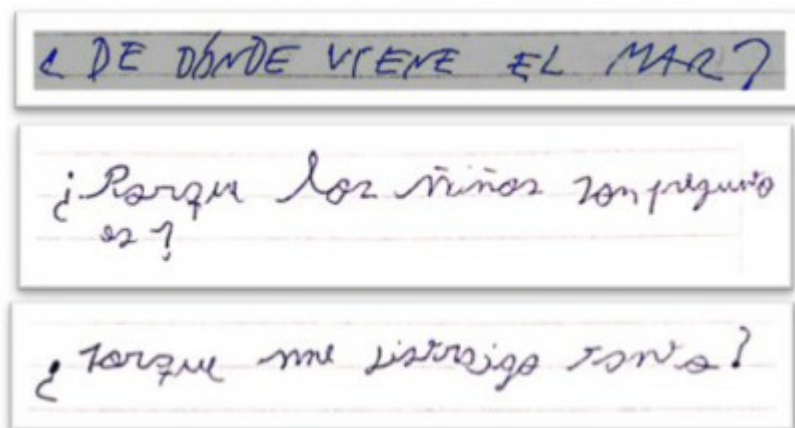 ¿ DE DÓNDE VIENE EL MAR?
¿Porque los niños son pregunto
es?
¿Porque me distraigo tanto?